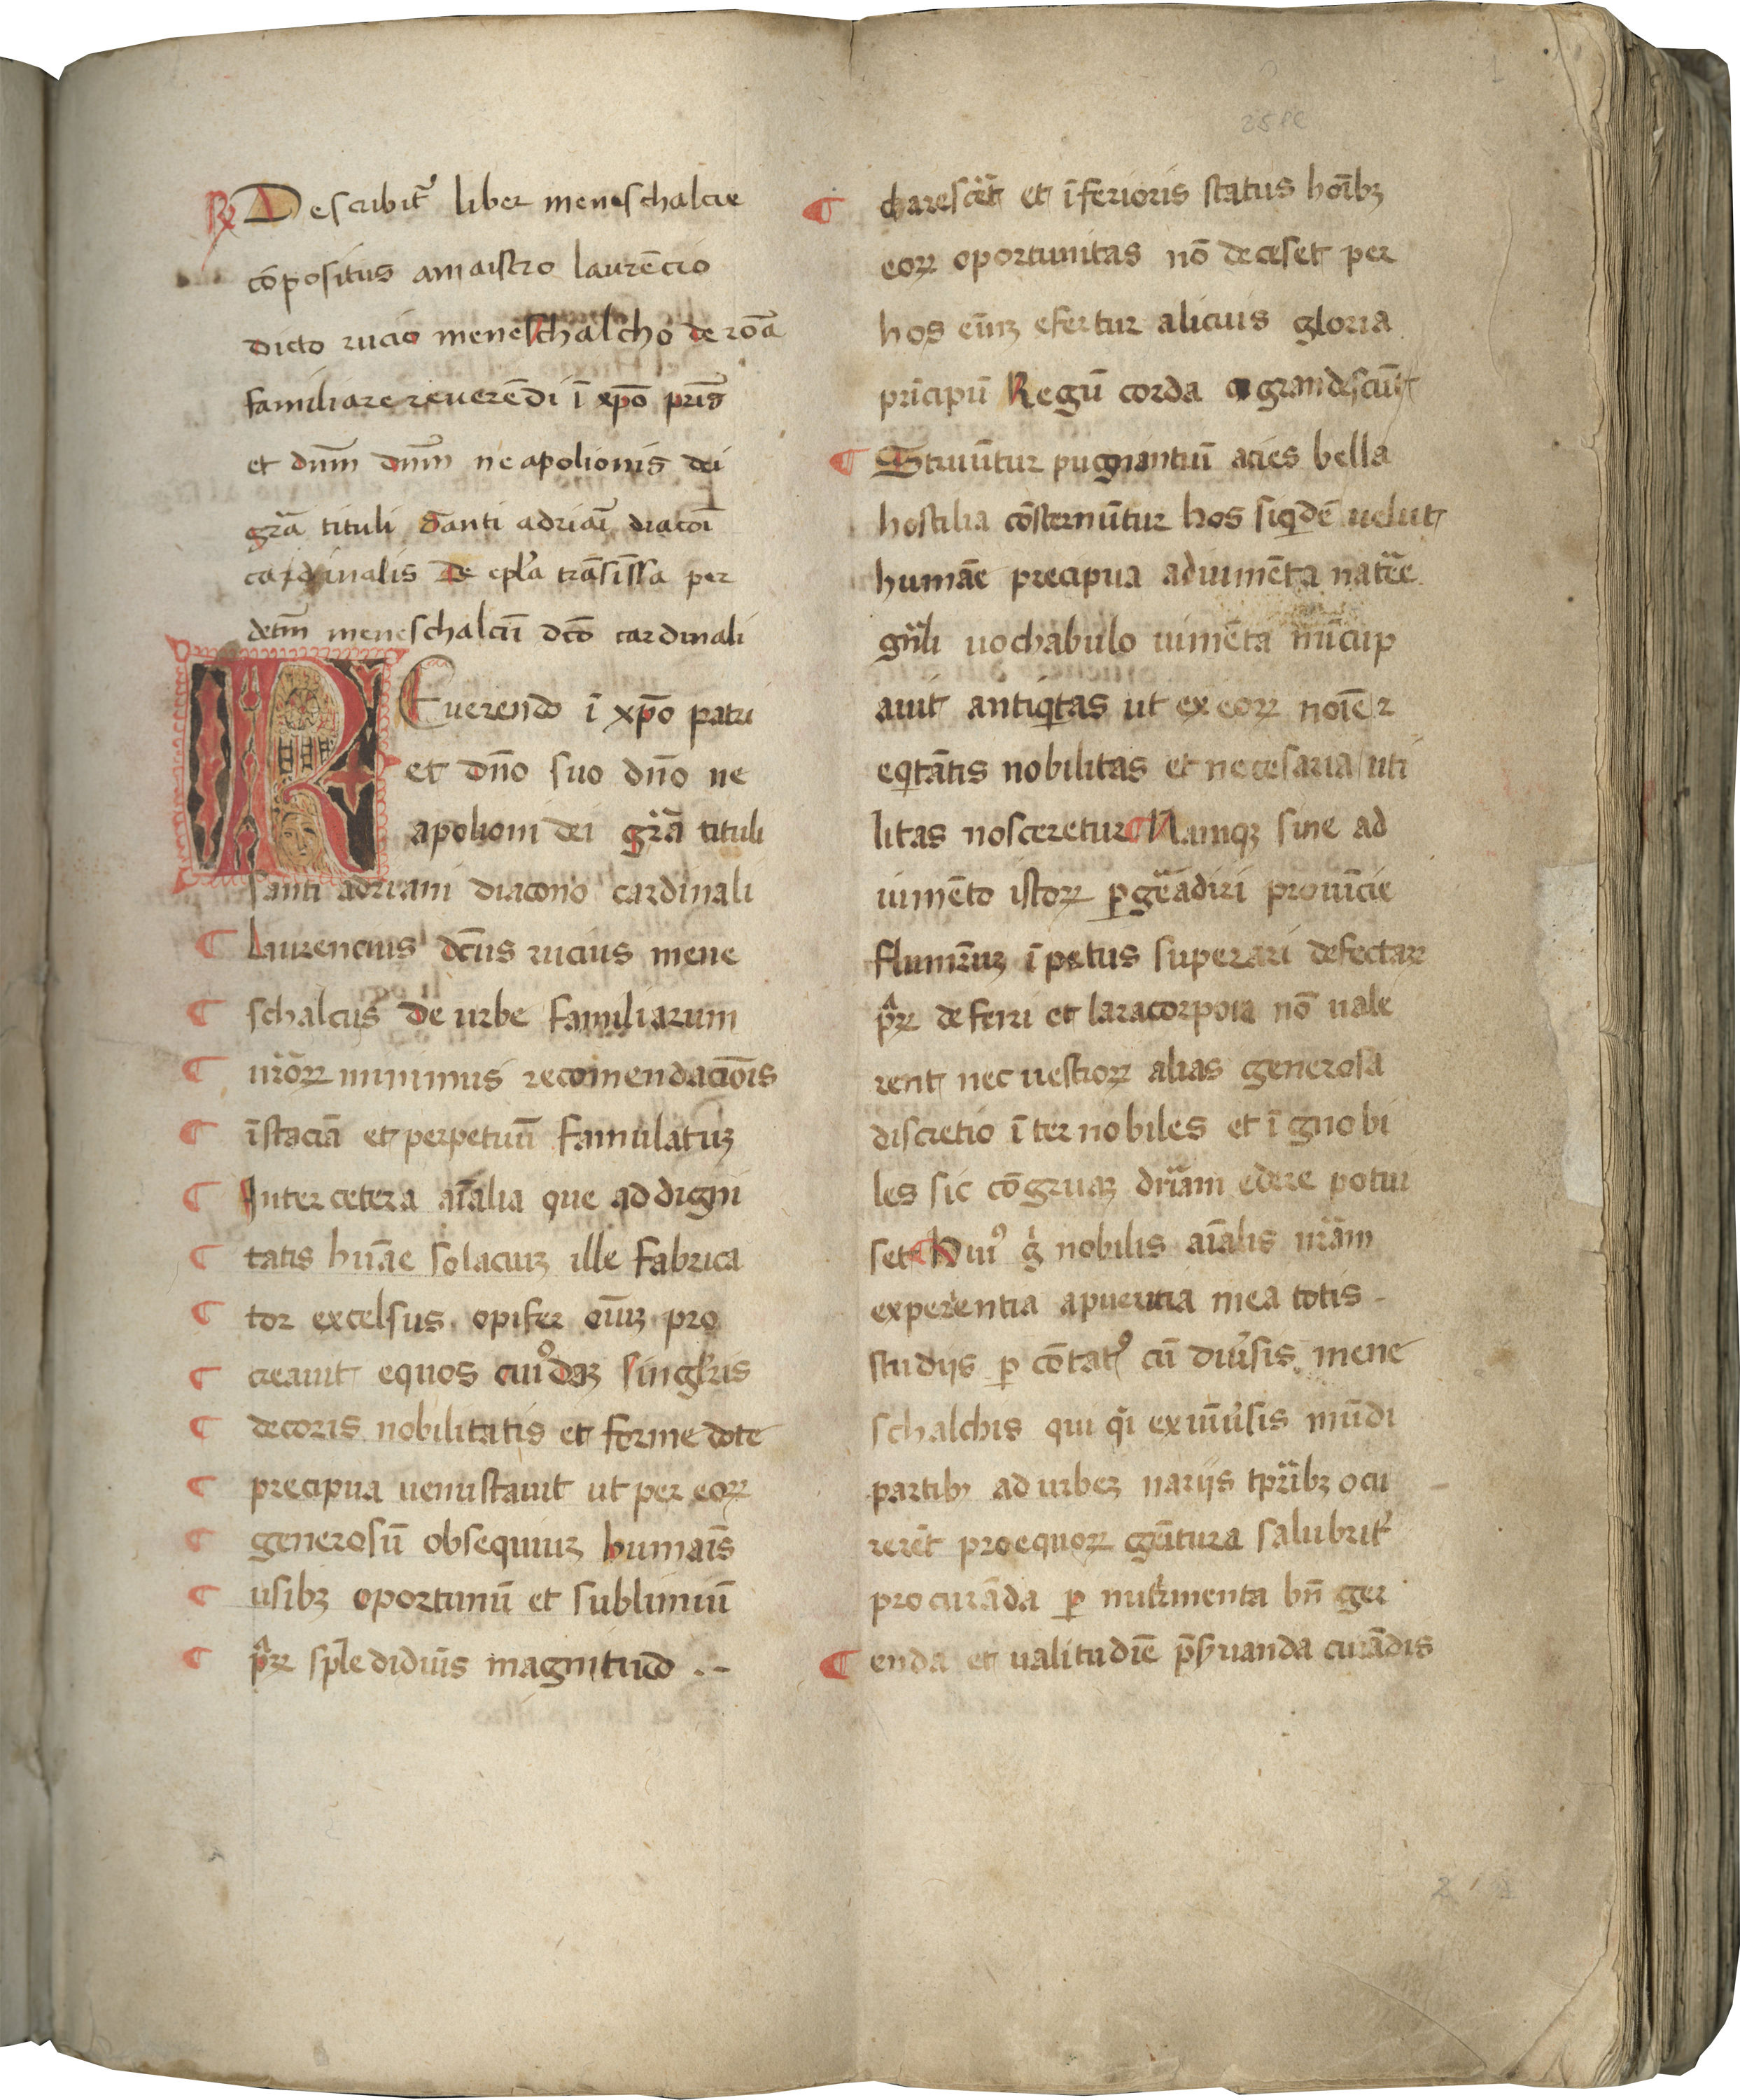 Describit᷑ liber meneschalcie
cōpositus amaistro laurēcio
dicto rucio meneschalcho de roā
familiare reuerēdi ī xp̄o pr̄is
et dn̄m dn̄m neapolionis dei
gr̄a tituli santi adriāi diacōi
cardinalis De epl̄a trāsiss̄a per
dc̄tm meneschalcū dc̄o cardinali
REuerendo ī xp̄o patri
et dn̄o suo dn̄o ne
apolioni dei gr̄a tituli
santi adriani diacono cardinali
¶ Laurencius dc̄us rucius mene
¶ schalcus de urbe familiarum
¶ ur̄oꝝ minimus recomendaciōis
¶ īstaciā et perpetuū famulatuꝫ
¶ Inter cetera aīalia que ad digni
¶ tatis huāe solaciuꝫ ille fabrica
¶ tor excelsus opifer oīuꝫ pro
¶ creauit equos cuiꝰdaꝫ singl̄ris
¶ decoris nobilitatis et forme dote
¶ precipua uenustauit ut per eoꝝ
¶ generosū obsequiuꝫ humaīs
¶ usibꝫ oportunū et sublimiū
¶ pͣꝝ splēdidiuīs magnitudo .-
¶ claresc̄et et īferioris status hoībꝫ
eoꝝ oportunitas nō deceset per
hos eīnꝫ efertur alicuis gloria
prīcipū Regū corda agrandescūt
¶ Struūtur pugnantiū acies bella
hostilia cōsternūtur hos siqͥdē uelut
humāe precipua adiumēta natr̄e
gn̄li uochabulo iumēta nūcup
auit antiqͥtas ut ex eoꝝ noīe ꝛ
eqͥtātis nobilitas et necesaria uti
litas nosceretur ¶ Namqꝫ sine ad
iumēto istoꝝ ꝑgrādiri prouīcie
flumīnuꝫ īpetus superari defectaꝝ
pͣꝝ deferri et lara corpora nō uale
rent nec uestioꝝ alias generosa
discretio īter nobiles et īgnobi
les sic cōgruaꝫ dr̄iam edere potui
set ¶ Huiꝰ gͥ nobilis aīalis ur̄am
experentia apueritia mea totis -
studijs ꝑ cōtatꝰ cū diu᷑sis mene
schalchis qui qͥ ex uniu᷑sis mūdi
partibꝫ ad urbeꝫ uariis tpr̄ibꝫ ocu
rerēt pro equoꝝ gēitura salubrit᷑
procurāda ꝑ nutrimenta bn̄ ger
¶ enda et ualitudīe p̄s᷑uanda curādis